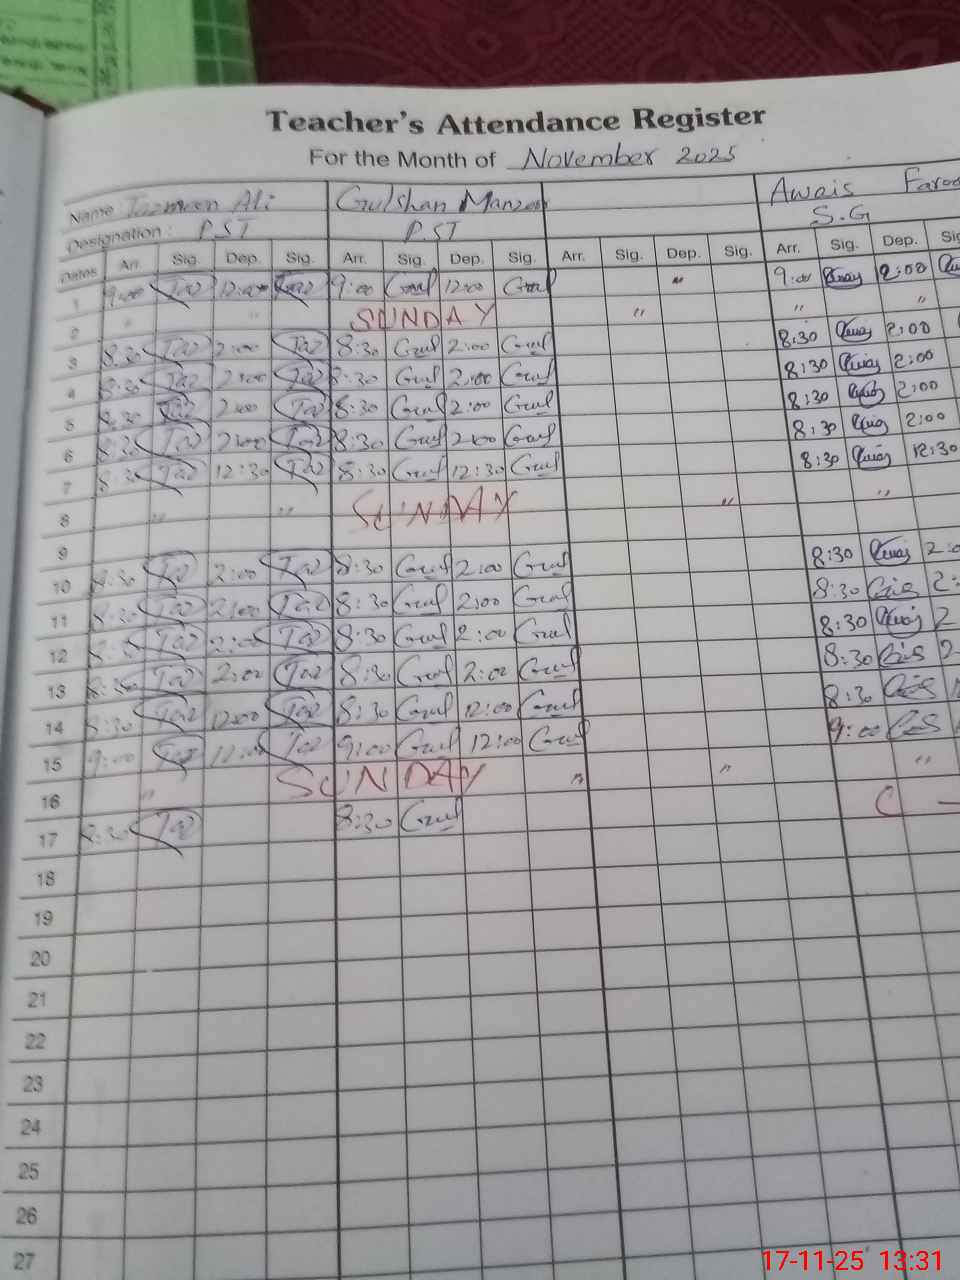 Teacher's Attendance Register
For the Month of November 2025
Name Tazmeen Ali Gulshan Manzoor Awais Faroo
Designation : P.ST P.ST S.G
Dates Arr. Sig. Dep. Sig. Arr. Sig. Dep. Sig. Arr. Sig. Dep. Sig. Arr. Sig. Dep. Sig
1 9:00 Taz 12:00 Taz 9:00 Gul 12:00 Gul " 9:00 Awais 2:00
2 " " SUNDAY " " "
3 8:30 Taz 2:00 Taz 8:30 Gul 2:00 Gul 8:30 Awais 2:00
4 8:30 Taz 2:00 Taz 8:30 Gul 2:00 Gul 8:30 Awais 2:00
5 8:30 Taz 2:00 Taz 8:30 Gul 2:00 Gul 8:30 Awais 2:00
6 8:30 Taz 2:00 Taz 8:30 Gul 2:00 Gul 8:30 Awais 2:00
7 8:30 Taz 12:30 Taz 8:30 Gul 12:30 Gul 8:30 Awais 12:30
8 " " SUNDAY " "
9
10 8:30 Taz 2:00 Taz 8:30 Gul 2:00 Gul 8:30 Awais 2:0
11 8:30 Taz 2:00 Taz 8:30 Gul 2:00 Gul 8:30 2:
12 8:30 Taz 2:00 Taz 8:30 Gul 2:00 Gul 8:30 Awais 2
13 8:30 Taz 2:00 Taz 8:30 Gul 2:00 Gul 8:30 2
14 8:30 Taz 12:00 Taz 8:30 Gul 12:00 Gul 8:30
15 9:00 Taz 12:00 Taz 9:00 Gul 12:00 Gul 9:00
16 " SUNDAY " " "
17 8:30 Taz 8:30 Gul C -
18
19
20
21
22
23
24
25
26
27
17-11-25 13:31